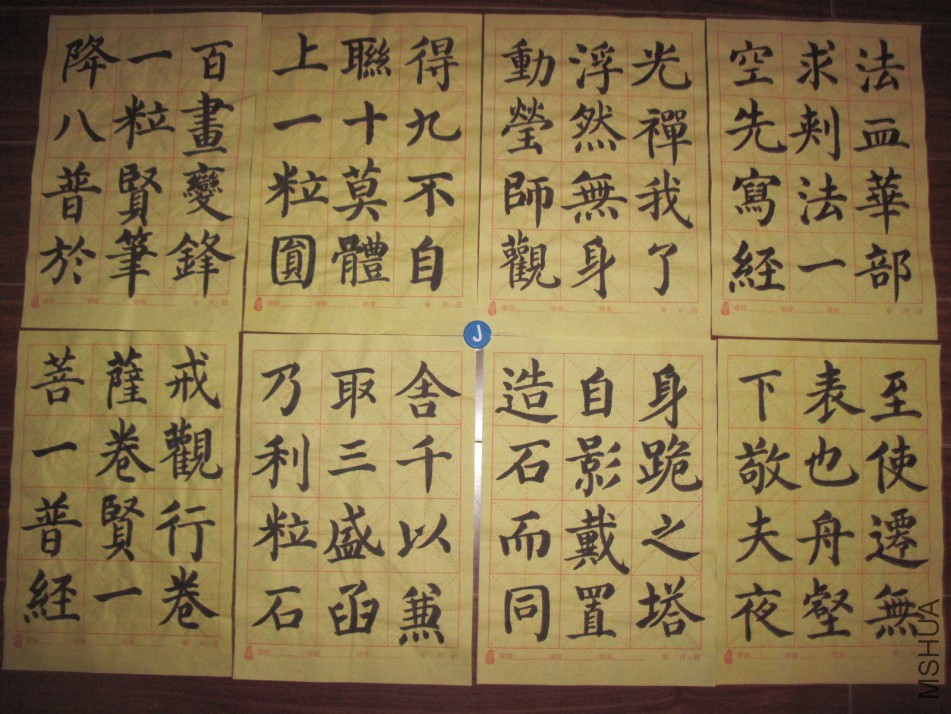 降一百
八粒畫
普賢變
於筆鋒
上聯得
一十九
粒莫不
圓體自
動浮光
瑩然禪
師無我
觀身了
空求法
先刾血
寫法華
經一部
菩薩戒
一卷觀
普賢行
經一卷
乃取舍
利三千
粒盛以
石函兼
造自身
石影跪
而戴之
同置塔
下表至
敬也使
夫舟遷
夜壑無
J
MSHUA